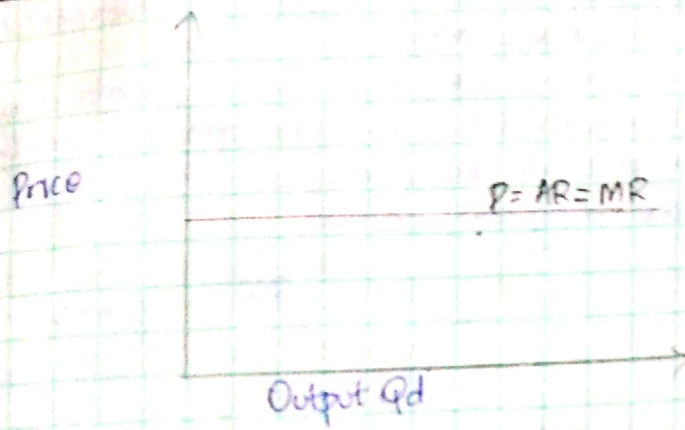 Price
P= AR= MR
Output Qd